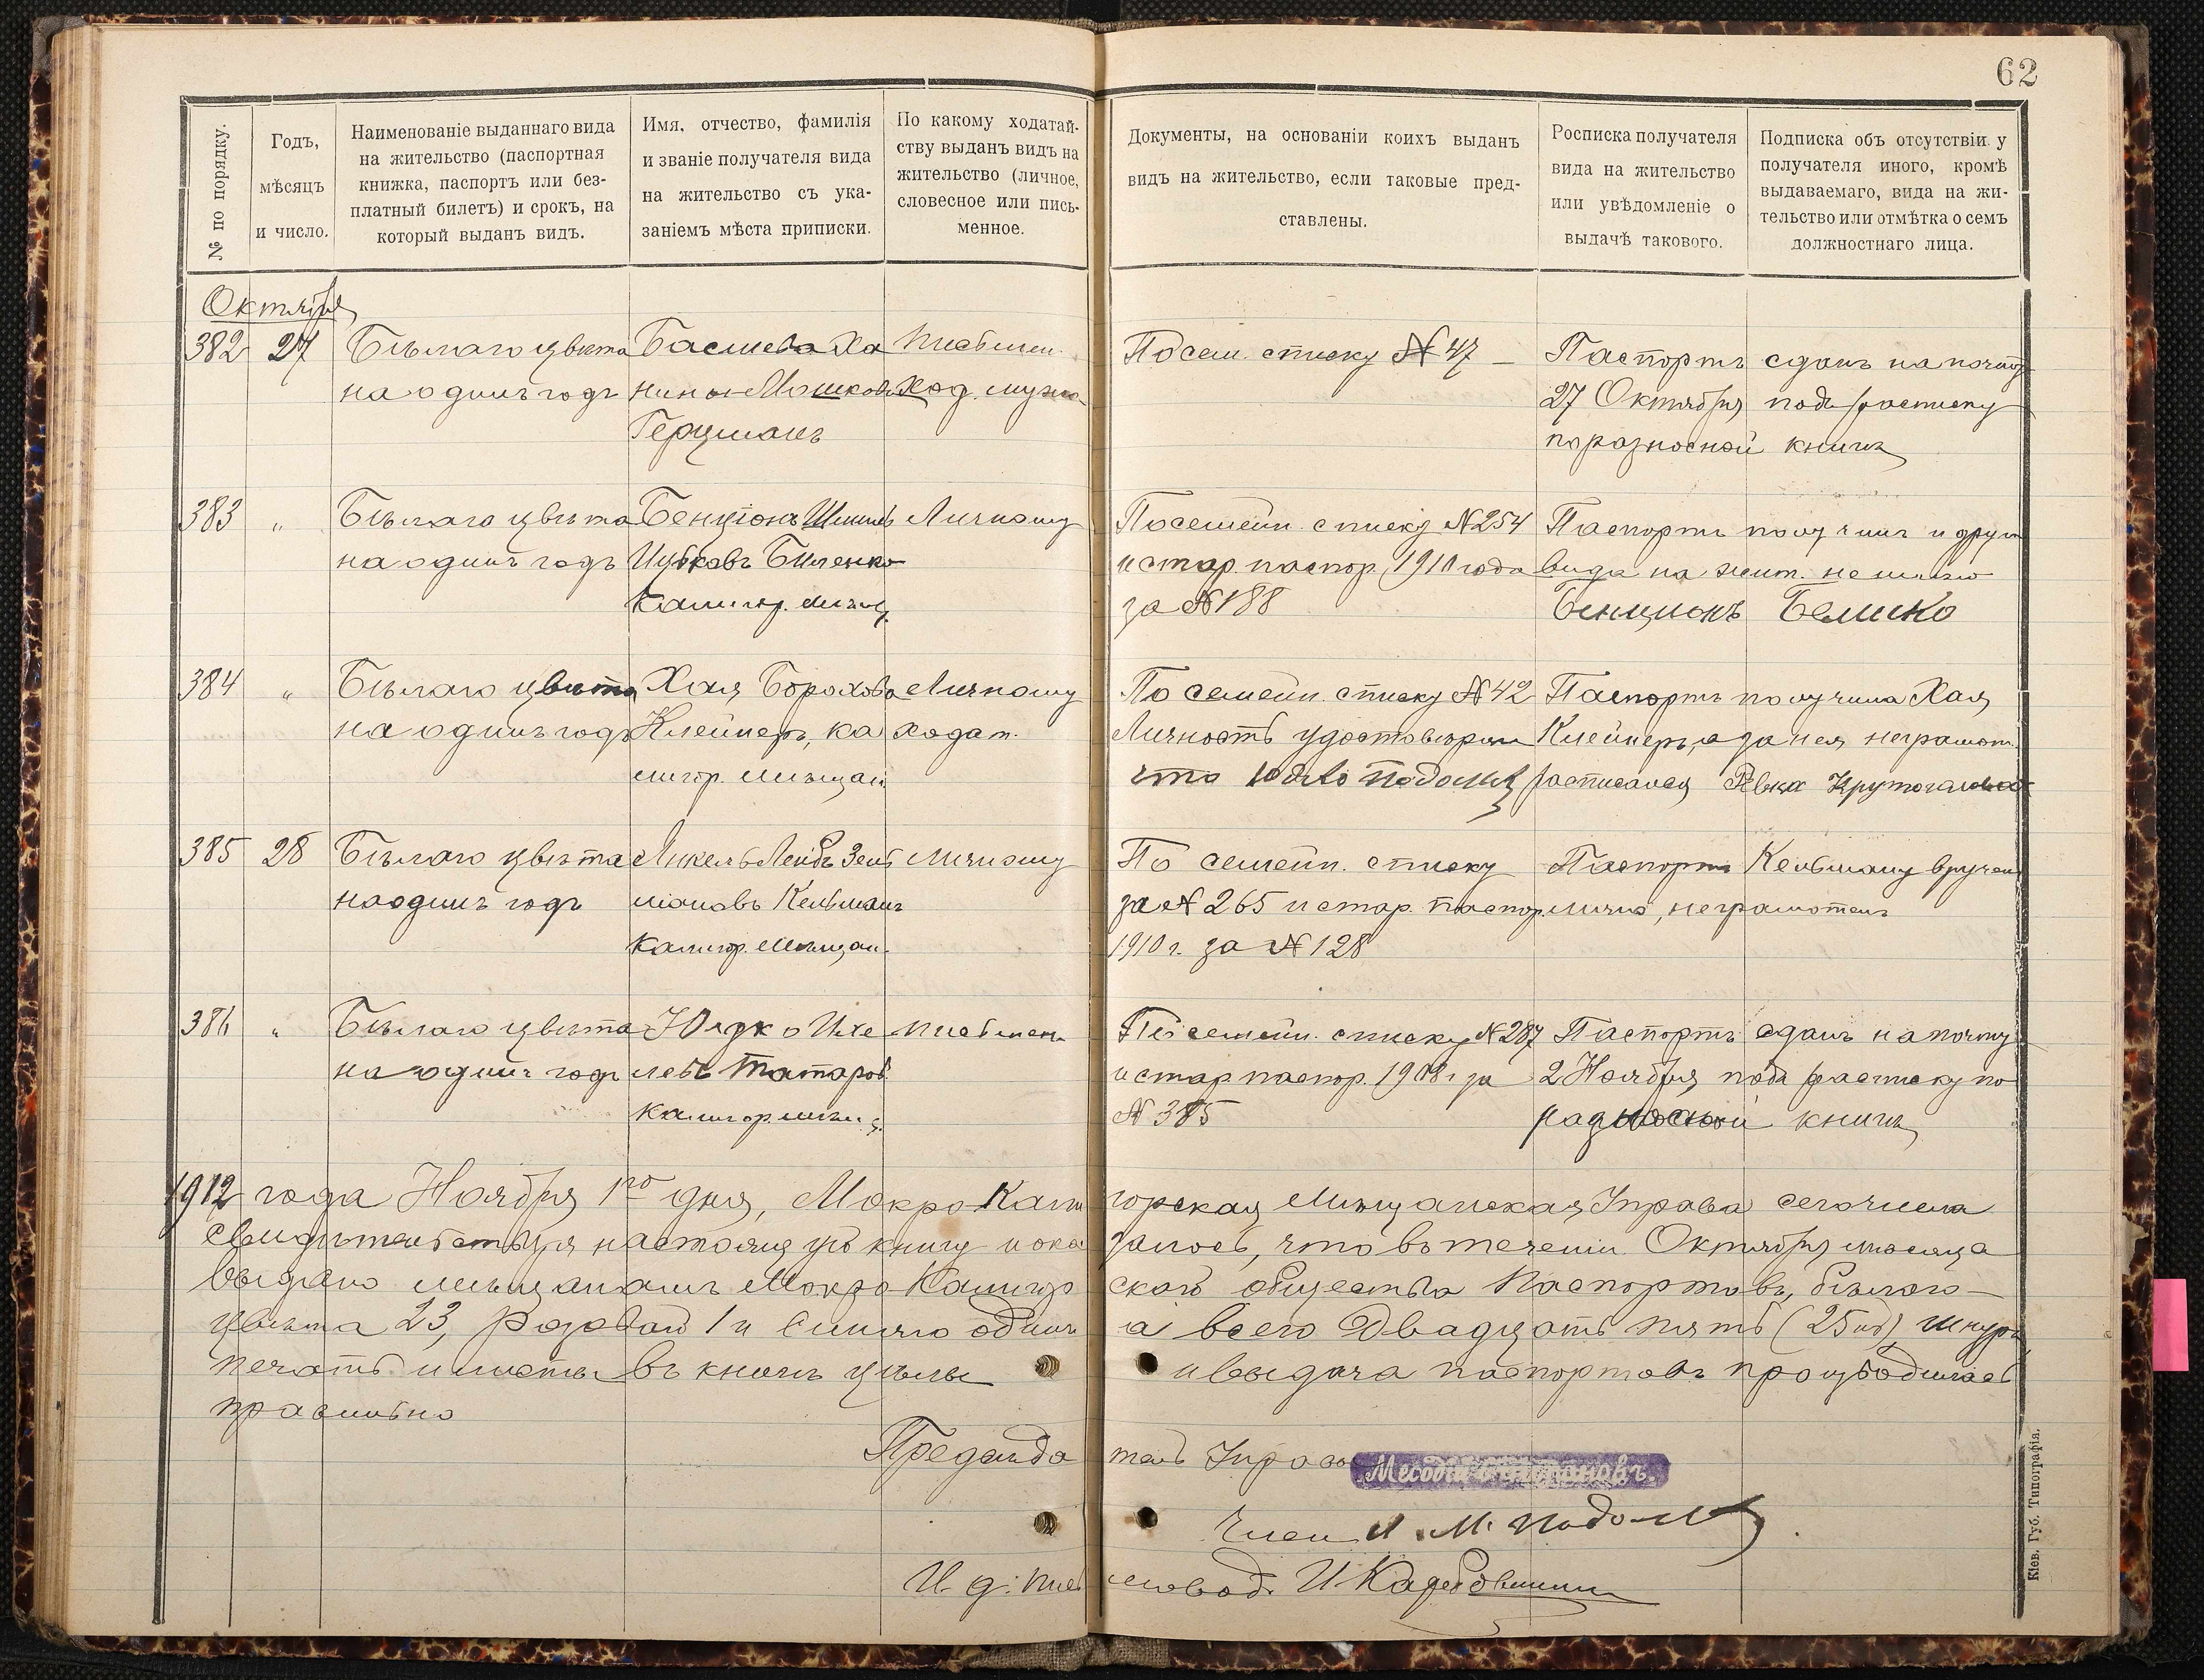 62
№ по порядку.
Годъ,
мѣсяцъ
и число.
Наименованіе выданнаго вида
на жительство (паспортная
книжка, паспортъ или без-
платный билетъ) и срокъ, на
который выданъ видъ.
Имя, отчество, фамилія
и званіе получателя вида
на жительство съ ука-
заніемъ мѣста приписки.
По какому ходатай-
ству выданъ видъ на
жительство (личное,
словесное или пись-
менное.
Документы, на основаніи коихъ выданъ
видъ на жительство, если таковые пред-
ставлены.
Росписка получателя
вида на жительство
или увѣдомленіе о
выдачѣ такового.
Подписка объ отсутствіи у
получателя иного, кромѣ
выдаваемаго, вида на жи-
тельство или отмѣтка о семъ
должностнаго лица.
Октября
382 27 Бѣлаго цвѣта Басшева Ха Письмен.
на одинъ годъ Мошков Ход. мужа
Герцманъ
По сем. списку № 47 – Паспортъ сданъ на почту
27 Октября подъ расписку
по разносной книгѣ
383 „ Бѣлаго цвѣта Бенціонъ Личному
на одинъ годъ Ицковъ Биленко
Калигор. мѣщ.
По семейн. списку № 254 Паспортъ получилъ и друг
и стар. паспор. 1910 года вида на жит. не имѣю
за № 188 Бенционъ Белико
384 „ Бѣлаго цвѣта Хая Борохова Личному
на одинъ годъ Клейнеръ, ка ходат.
лигор. мѣщан.
По семейн. списку № 42 Паспортъ получила Хая
Личность удостовѣряю Клейнеръ, а за нея неграмот.
расписалася Ривка
385 28 Бѣлаго цвѣта Лейбъ Зель Личному
на одинъ годъ мановъ Кельманъ
Калигор. Мѣщан.
По семейн. списку Паспортъ Кельману вручен
за № 265 и стар. паспор. лично, неграмотенъ
1910 г. за № 128
386 „ Бѣлаго цвѣта Юдко Ихе Письмен.
на одинъ годъ левъ Татаров.
Калигор. мѣщ.
По семейн. списку № 287 Паспортъ сданъ на почту
и стар. паспор. 1908 г за 2 Ноября подъ расписку по
№ 385 разносной книгѣ
1912 года Ноября 1го дня, Мокро Кали горская Мѣщанская Управа сего числа
свидѣтельствуя настоящую книгу и ока залось, что въ теченіи Октября мѣсяца
выдано мѣщанамъ Мокро Калигор скаго общества Паспортовъ, бѣлаго –
цвѣта 23, Розовой 1 и Синяго одинъ а всего Двадцать пять (25), шнуръ,
печать и листы въ книгѣ цѣлы и выдача паспортовъ производилась
правильно
Предсѣда тель Управы
Член И. М. Подол
И. д. пись мовод.
Кіев. Губ. Типографія.